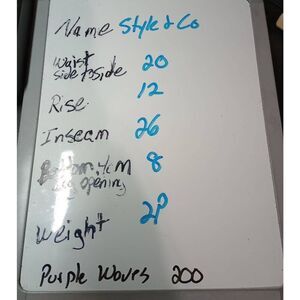 Name Style & Co
Waist side to side 20
Rise 12
Inseam 26
Bottom Hem
leg opening 8
Weight 2P
Purple Waves 200